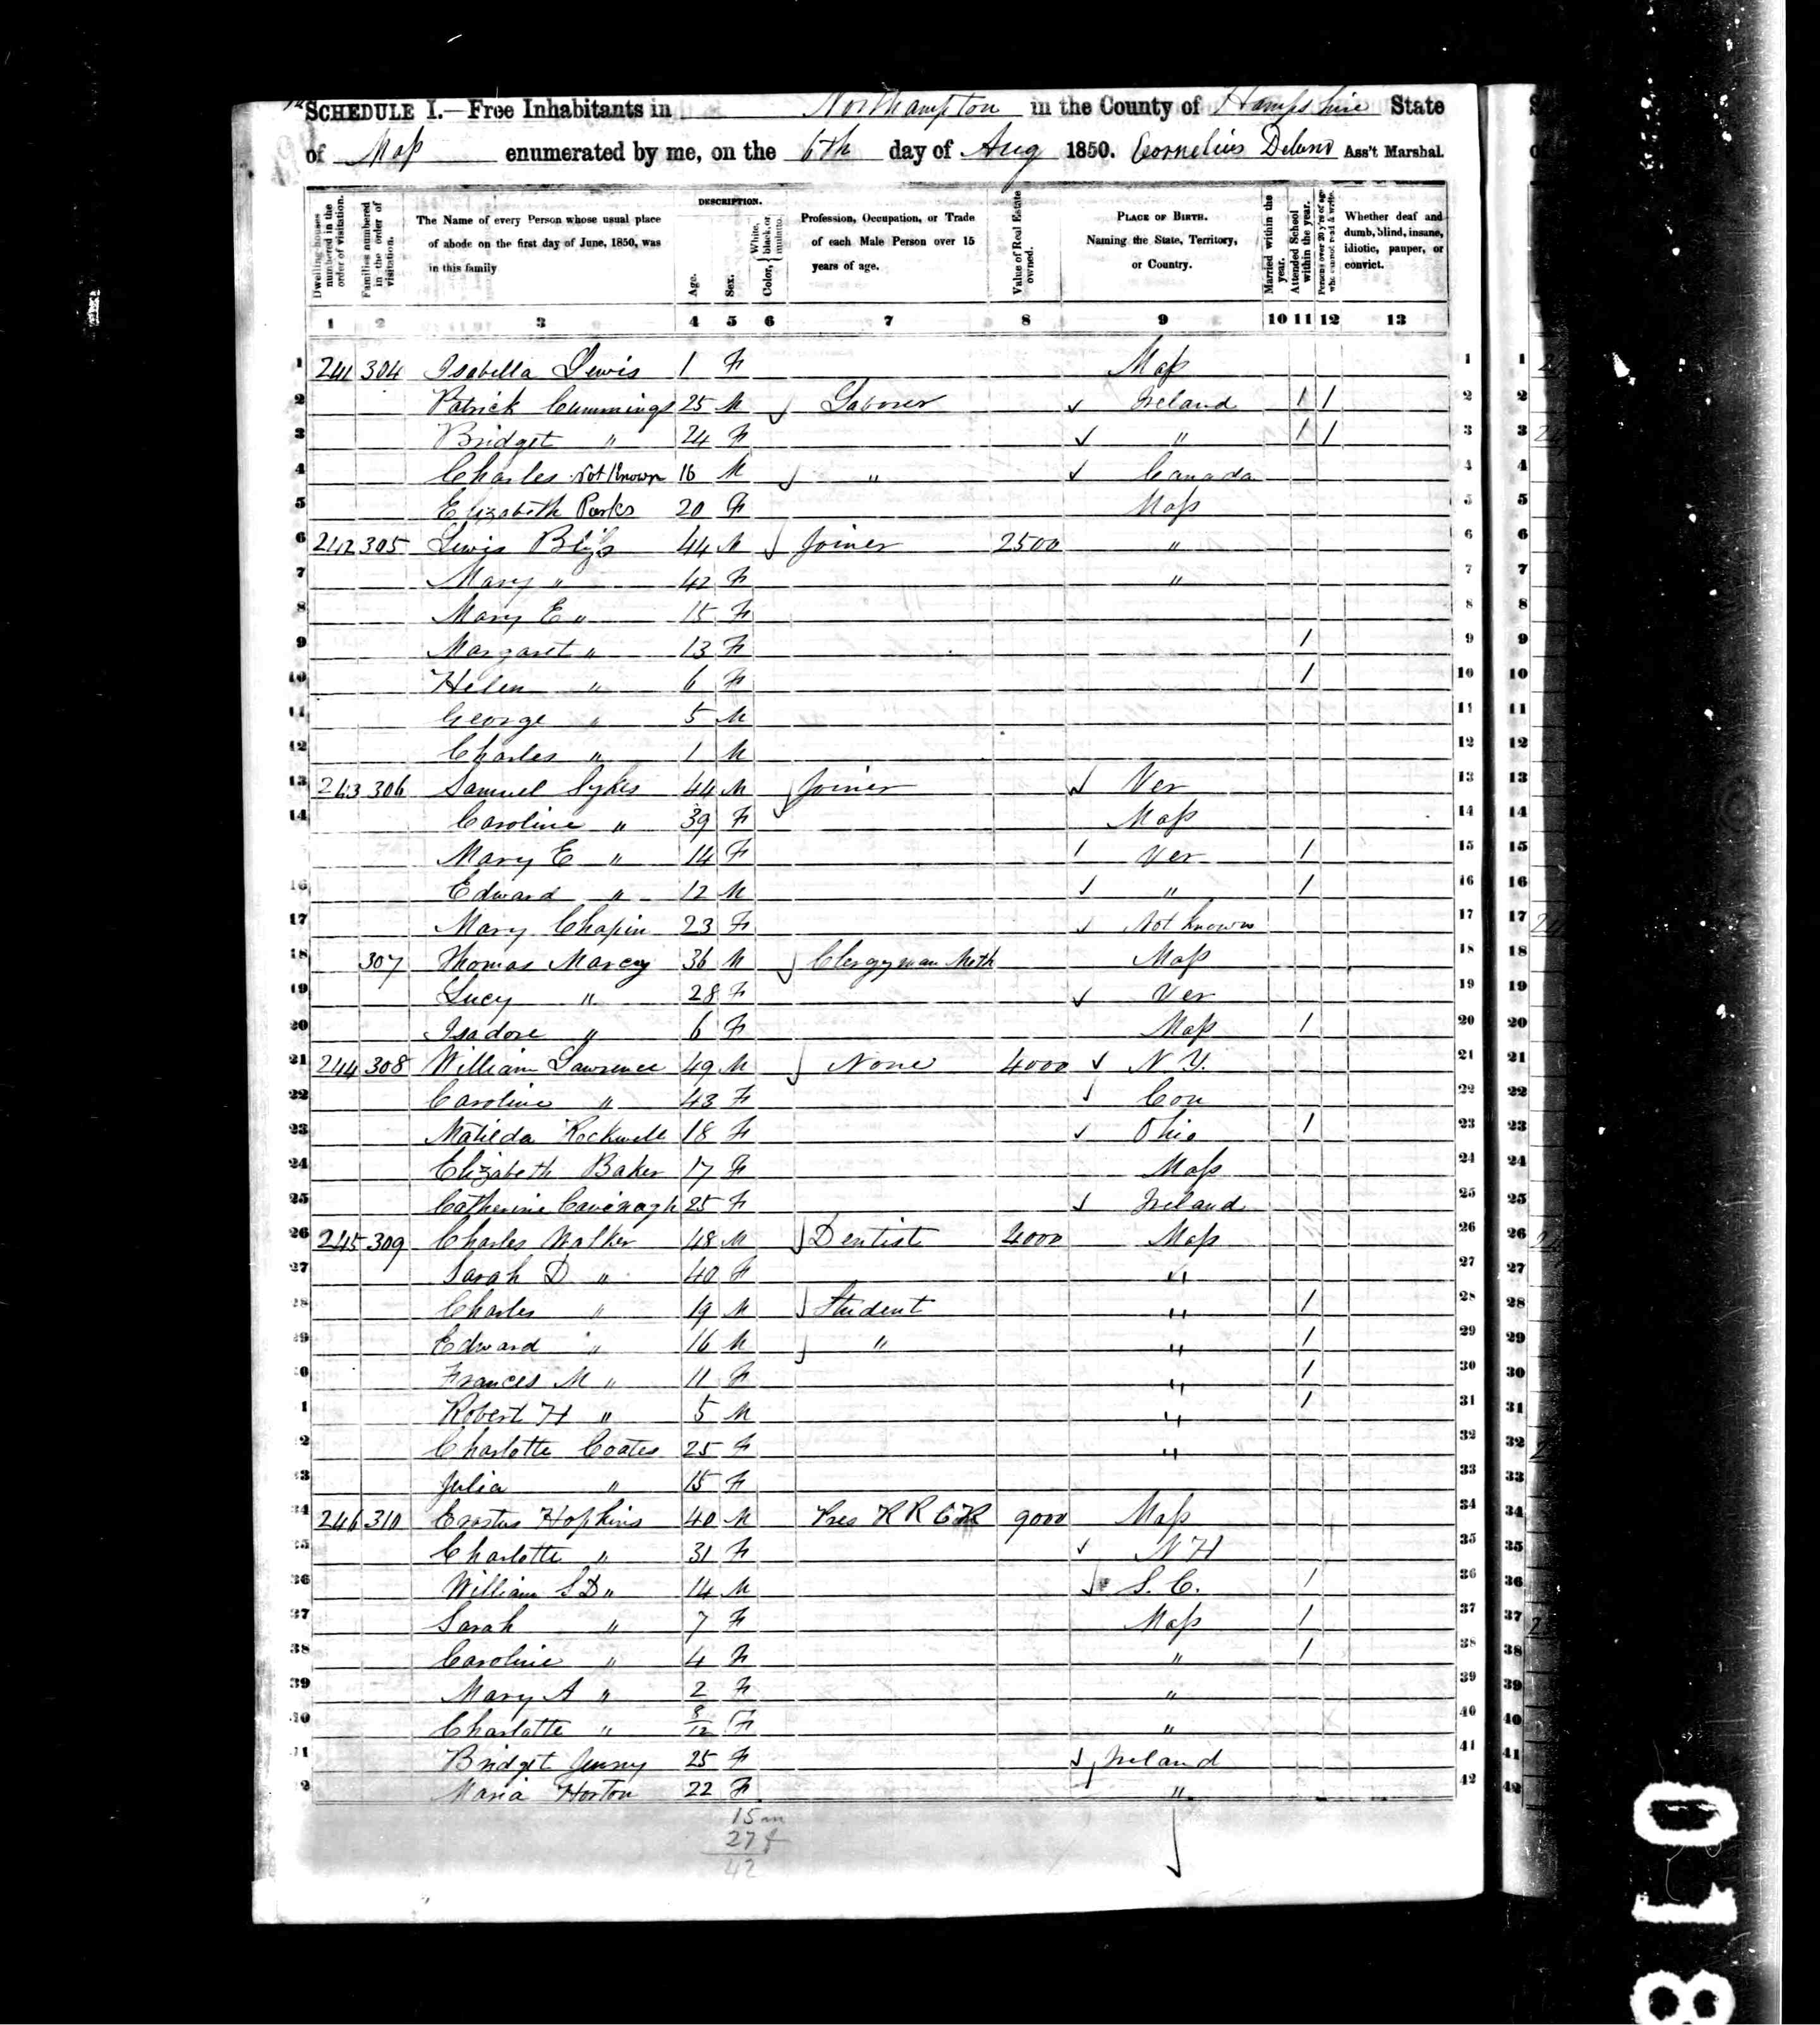 SCHEDULE I.—Free Inhabitants in Northampton in the County of Hampshire State
of Mass enumerated by me, on the 6th day of Aug 1850. Cornelius Deland Ass't Marshal.
Dwelling-houses numbered in the order of visitation.
Families numbered in the order of visitation.
The Name of every Person whose usual place of abode on the first day of June, 1850, was in this family
DESCRIPTION.
Age.
Sex.
Color, { White, black, or mulatto.
Profession, Occupation, or Trade of each Male Person over 15 years of age.
Value of Real Estate owned.
PLACE OF BIRTH. Naming the State, Territory, or Country.
Married within the year.
Attended School within the year.
Persons over 20 y'rs of age who cannot read & write.
Whether deaf and dumb, blind, insane, idiotic, pauper, or convict.
1 2 3 4 5 6 7 8 9 10 11 12 13
1 241 304 Isabella Lewis 1 F Mass 1
2 Patrick Cummings 25 M Laborer Ireland 1 1 2
3 Bridget " 24 F " 1 1 3
4 Charles Not Known 16 M " Canada 4
5 Elizabeth Parks 20 F Mass 5
6 242 305 Lewis Bliss 44 M Joiner 2500 " 6
7 Mary " 42 F " 7
8 Mary E " 15 F 8
9 Margaret " 13 F 1 9
10 Helen " 6 F 1 10
11 George " 5 M 11
12 Charles " 1 M 12
13 243 306 Samuel Sykes 44 M Joiner Ver 13
14 Caroline " 39 F Mass 14
15 Mary E " 14 F Ver 1 15
16 Edward " 12 M " 1 16
17 Mary Chapin 23 F Not known 17
18 307 Thomas Marcy 36 M Clergyman Meth Mass 18
19 Lucy " 28 F Ver 19
20 Isadore " 6 F Mass 1 20
21 244 308 William Lawrence 49 M None 4000 N.Y. 21
22 Caroline " 43 F Con 22
23 Matilda Rockwell 18 F Ohio 1 23
24 Elizabeth Baker 17 F Mass 24
25 Catherine Cavenagh 25 F Ireland 25
26 245 309 Charles Walker 48 M Dentist 4000 Mass 26
27 Sarah D " 40 F " 27
28 Charles " 19 M Student " 1 28
29 Edward " 16 M " " 1 29
30 Frances M " 11 F " 1 30
31 Robert H " 5 M " 1 31
32 Charlotte Coates 25 F " 32
33 Julia " 15 F 33
34 246 310 Erastus Hopkins 40 M Pres R R 9000 Mass 34
35 Charlotte " 31 F N H 35
36 William S D " 14 M S. C. 1 36
37 Sarah " 7 F Mass 1 37
38 Caroline " 4 F " 1 38
39 Mary A " 2 F " 39
40 Charlotte " 8/12 F " 40
41 Bridget 25 F Ireland 41
42 Maria Horton 22 F " 42
15 m
27 f
42
018